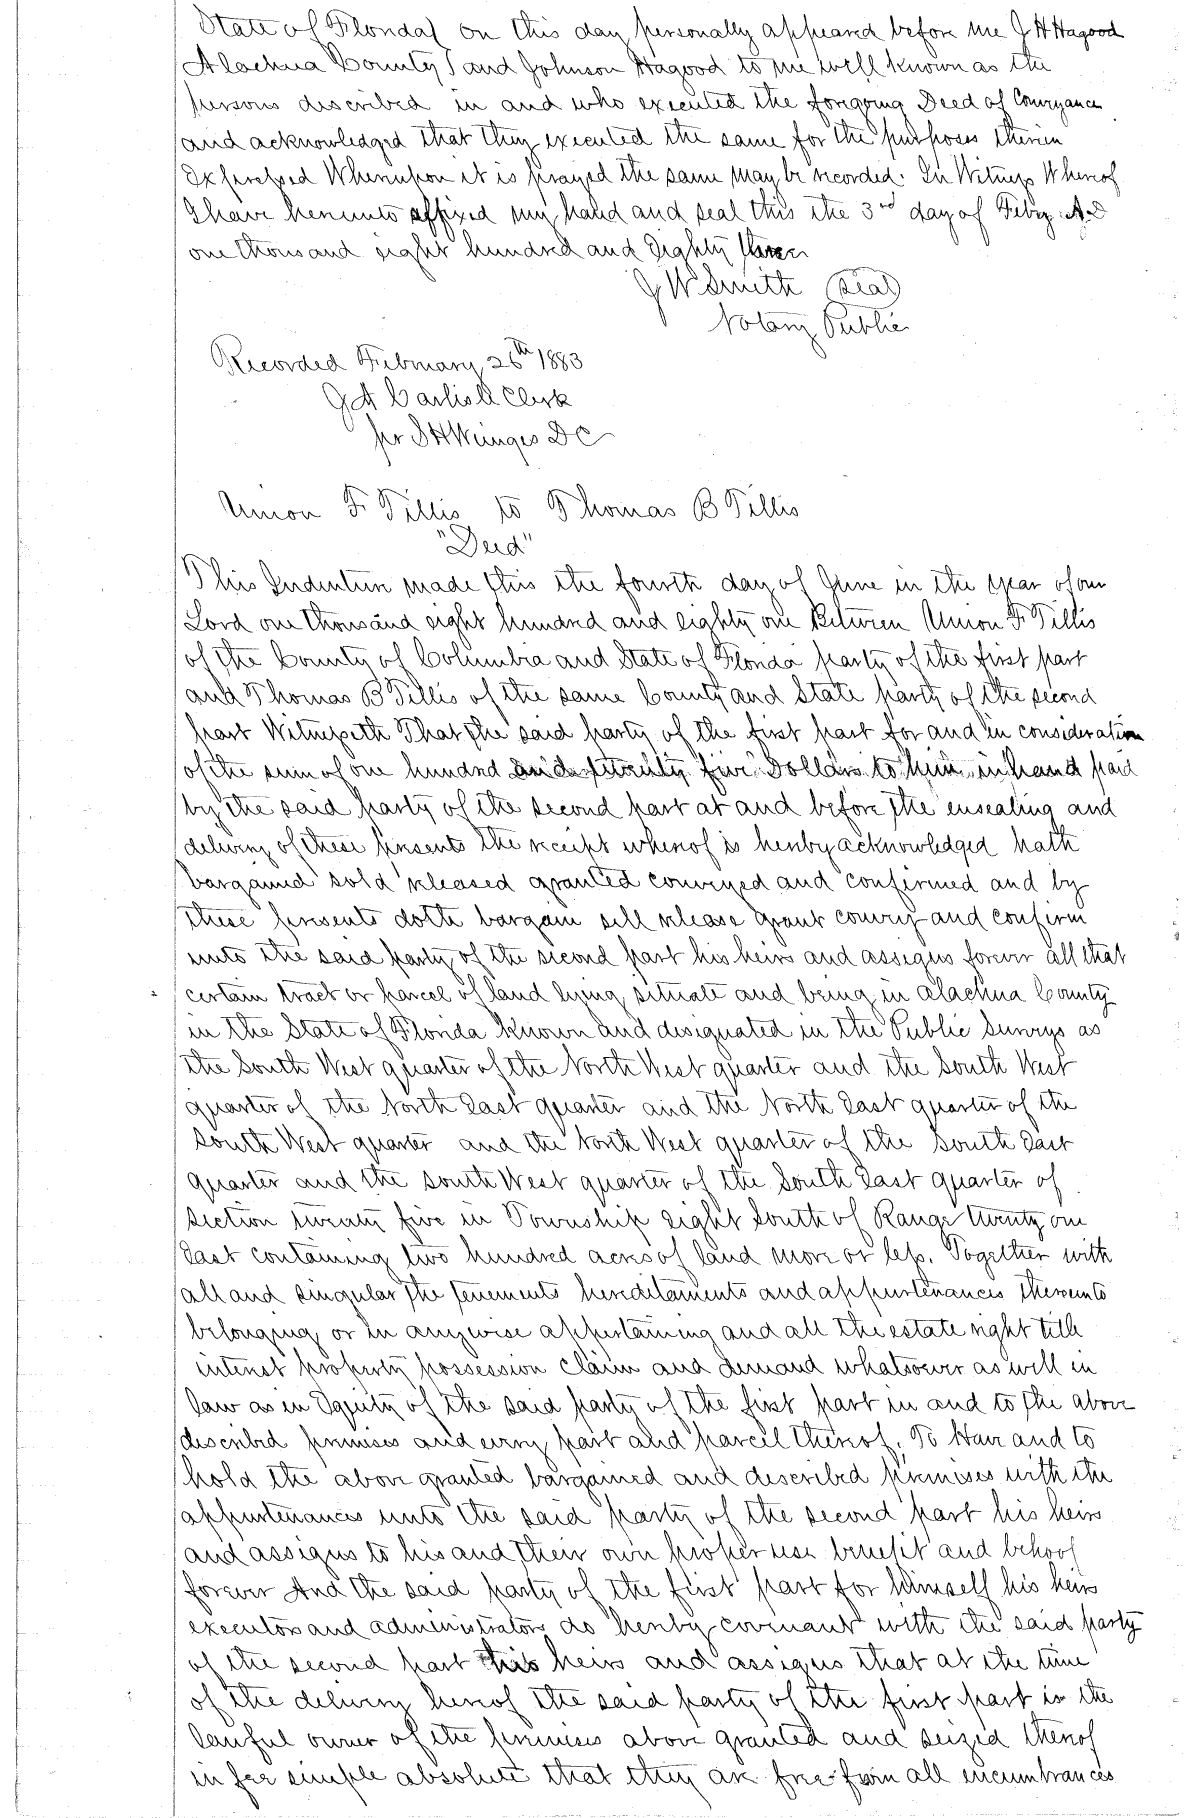 State of Florida } on this day personally appeared before me J H Hagood
Alachua County } and Johnson Hagood to me well known as the
persons described in and who executed the foregoing Deed of Conveyance
and acknowledged that they executed the same for the purposes therein
Expressed Whereupon it is prayed the same may be recorded. In Witness Whereof
I have hereunto affixed my hand and seal this the 3rd day of Feby. A.D
one thousand eight hundred and Eighty three
J W Smith (Seal)
Notary Public
Recorded February 26th 1883
J A Carlisle Clerk
per S H Wienges D C
Union F Tillis to Thomas B Tillis
"Deed"
This Indenture made this the fourth day of June in the year of our
Lord one thousand eight hundred and eighty one Between Union F Tillis
of the County of Columbia and State of Florida party of the first part
and Thomas B Tillis of the same County and State party of the second
part Witnesseth That the said party of the first part for and in consideration
of the sum of one hundred and twenty five Dollars to him in hand paid
by the said party of the second part at and before the ensealing and
delivery of these presents the receipt whereof is hereby acknowledged hath
bargained sold released granted conveyed and confirmed and by
these presents doth bargain sell release grant convey and confirm
unto the said party of the second part his heirs and assigns forever all that
certain tract or parcel of land lying situate and being in Alachua County
in the State of Florida known and designated in the Public Surveys as
the South West quarter of the North West quarter and the South West
quarter of the North East quarter and the North East quarter of the
South West quarter and the North West quarter of the South East
quarter and the South West quarter of the South East quarter of
Section twenty five in Township eight South of Range twenty one
East containing two hundred acres of land more or less. Together with
all and singular the tenements hereditaments and appurtenances thereunto
belonging or in anywise appertaining and all the estate right title
interest property possession claim and demand whatsoever as well in
law as in Equity of the said party of the first part in and to the above
described premises and every part and parcel thereof. To Have and to
hold the above granted bargained and described premises with the
appurtenances unto the said party of the second part his heirs
and assigns to his and their own proper use benefit and behoof
forever And the said party of the first part for himself his heirs
executors and administrators do hereby covenant with the said party
of the second part his heirs and assigns that at the time
of the delivery hereof the said party of the first part is the
lawful owner of the premises above granted and seized thereof
in fee simple absolute that they are free from all incumbrances